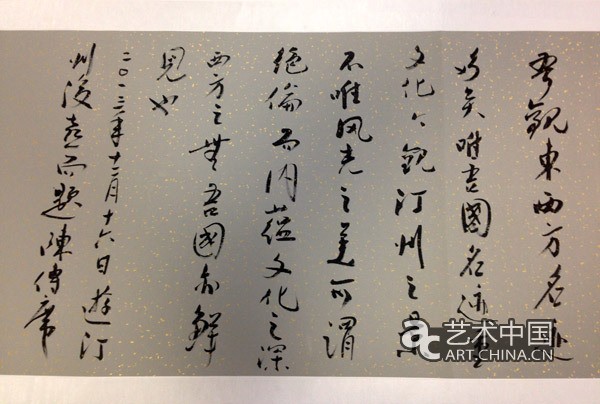 吾觀東西方名迹
多矣唯吾國名迹重
文化今觀汀州之景
不唯風光之美可謂
絕倫而內蘊文化之深
西方之無吾國亦鮮
見也
二〇一三年十二月十六日遊汀
州後喜而題陳傳席
ac 艺术中国
ART.CHINA.CN